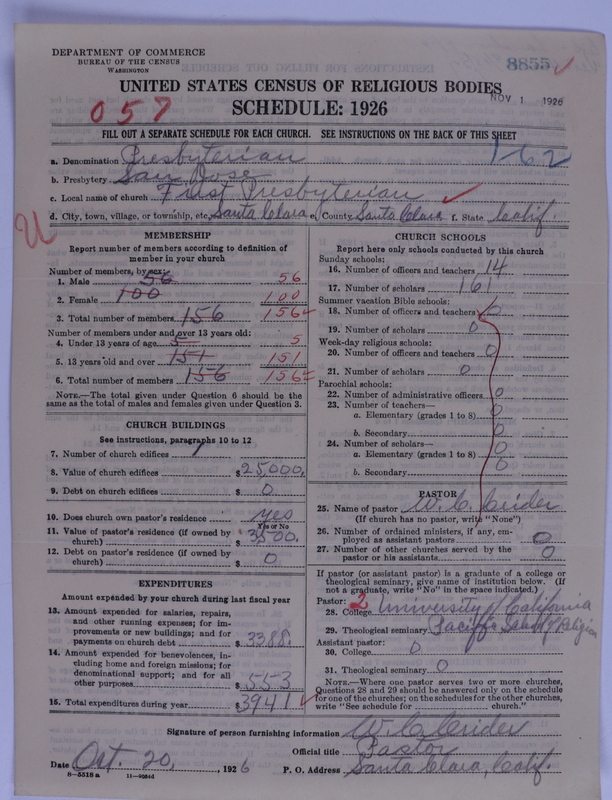 DEPARTMENT OF COMMERCE
BUREAU OF THE CENSUS
WASHINGTON
8855
UNITED STATES CENSUS OF RELIGIOUS BODIES
NOV 1 1926
SCHEDULE: 1926
057
FILL OUT A SEPARATE SCHEDULE FOR EACH CHURCH. SEE INSTRUCTIONS ON THE BACK OF THIS SHEET
a. Denomination Presbyterian
1-62
b. Presbytery San Jose
c. Local name of church First Presbyterian
d. City, town, village, or township, etc. Santa Clara e. County Santa Clara f. State Calif.
U
MEMBERSHIP
Report number of members according to definition of
member in your church
Number of members, by sex:
1. Male 56 56
2. Female 100 100
3. Total number of members 156 156
Number of members under and over 13 years old:
4. Under 13 years of age 5 5
5. 13 years old and over 151 151
6. Total number of members 156 156
NOTE.—The total given under Question 6 should be
same as the total of males and females given under Question 3.
CHURCH BUILDINGS
See instructions, paragraphs 10 to 12
7. Number of church edifices 1
8. Value of church edifices $25,000.
9. Debt on church edifices $ 0
10. Does church own pastor's residence yes
Yes or No
11. Value of pastor's residence (if owned by
church) $3500.
12. Debt on pastor's residence (if owned by
church) $ 0
EXPENDITURES
Amount expended by your church during last fiscal year
13. Amount expended for salaries, repairs,
and other running expenses; for im-
provements or new buildings; and for
payments on church debt $3388.
14. Amount expended for benevolences, in-
cluding home and foreign missions; for
denominational support; and for all
other purposes $553
15. Total expenditures during year $3941
CHURCH SCHOOLS
Report here only schools conducted by this church
Sunday schools:
16. Number of officers and teachers 14
17. Number of scholars 161
Summer vacation Bible schools:
18. Number of officers and teachers 0
19. Number of scholars 0
Week-day religious schools:
20. Number of officers and teachers 0
21. Number of scholars 0
Parochial schools:
22. Number of administrative officers 0
23. Number of teachers—
a. Elementary (grades 1 to 8) 0
b. Secondary 0
24. Number of scholars—
a. Elementary (grades 1 to 8) 0
b. Secondary 0
PASTOR
25. Name of pastor W. C. Crider
(If church has no pastor, write "None")
26. Number of ordained ministers, if any, em-
ployed as assistant pastors 0
27. Number of other churches served by the
pastor or his assistants 0
If pastor (or assistant pastor) is a graduate of a college or
theological seminary, give name of institution below. (If
not a graduate, write "No" in the space indicated.)
Pastor: 2
28. College University of California
29. Theological seminary Pacific School of Religion
Assistant pastor:
30. College 0
31. Theological seminary 0
NOTE.—Where one pastor serves two or more churches,
Questions 28 and 29 should be answered only on the schedule
for one of the churches; on the schedules for the other churches,
write "See schedule for church."
Signature of person furnishing information W. C. Crider
Official title Pastor
Date Oct. 20, 1926 P. O. Address Santa Clara, Calif.
8—5318 a